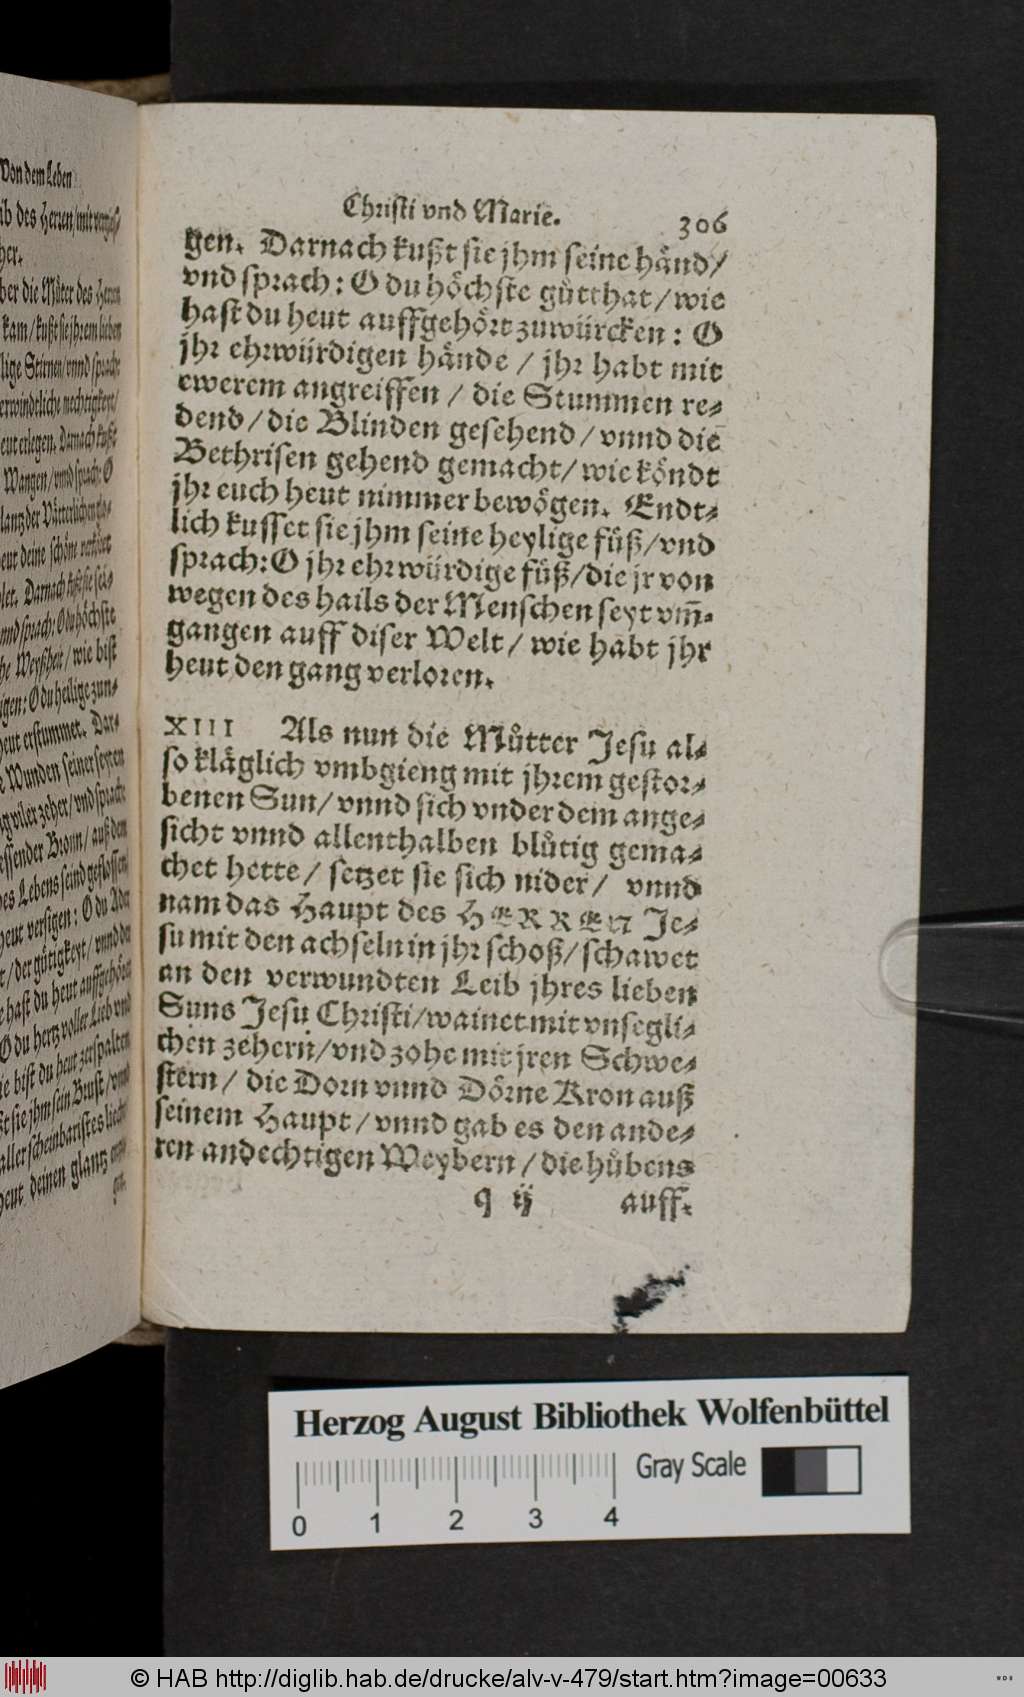 Von dem Leben
ib des Herren/mit
her.
ber die Můter des Herren
kam/kußt sie jhrem lieben
lige Stirnen/vnnd sprach:
heut erlegen. Darnach kußt
Wangen/vnnd sprach: O
glantz der Vätterlichen
heut deine schöne
Darnach kußt sie sei-
vnnd sprach: O du höchste
Weyßheit/wie bist
O du heilige zun-
heut erstummet. Dar-
Wunden seiner seyten
viler zeher/vnd sprach:
Bronn/auß dem
des Lebens seind geflossen
heut versigen: O du Ader
der gütigkeyt/vnnd der
hast du heut auffgehöret
O du hertz voller Lieb vnd
wie bist du heut zerspalten
sie jhm sein Brust/vnnd
aller scheinbaristes liecht
heut deinen glantz
Christi vnd Marie.
306
gen. Darnach kußt sie jhm seine händ/
vnd sprach: O du höchste gůtthat/wie
hast du heut auffgehört zuwürcken: O
jhr ehrwürdigen hände / jhr habt mit
ewerem angreiffen / die Stummen re-
dend/die Blinden gesehend/vnnd die
Bethrisen gehend gemacht/wie köndt
jhr euch heut nimmer bewögen. Endt-
lich kusset sie jhm seine heylige füß/vnd
sprach: O jhr ehrwürdige füß/die jr von
wegen des hails der Menschen seyt vm̄-
gangen auff diser Welt/ wie habt jhr
heut den gang verloren.
XIII Als nun die Můtter Jesu al-
so kläglich vmbgieng mit jhrem gestor-
benen Sun/vnnd sich vnder dem ange-
sicht vnnd allenthalben blůtig gema-
chet hette/ setzet sie sich nider/ vnnd
nam das Haupt des HERREN Je-
su mit den achseln in jhr schoß/schawet
an den verwundten Leib jhres lieben
Suns Jesu Christi/wainet mit vnsegli-
chen zehern/vnd zohe mit jren Schwe-
stern/ die Dorn vnnd Dörne Kron auß
seinem Haupt/vnnd gab es den ande-
ren andechtigen Weybern/die hůbens
q ij auff.
Herzog August Bibliothek Wolfenbüttel
Gray Scale
0 1 2 3 4
© HAB http://diglib.hab.de/drucke/alv-v-479/start.htm?image=00633